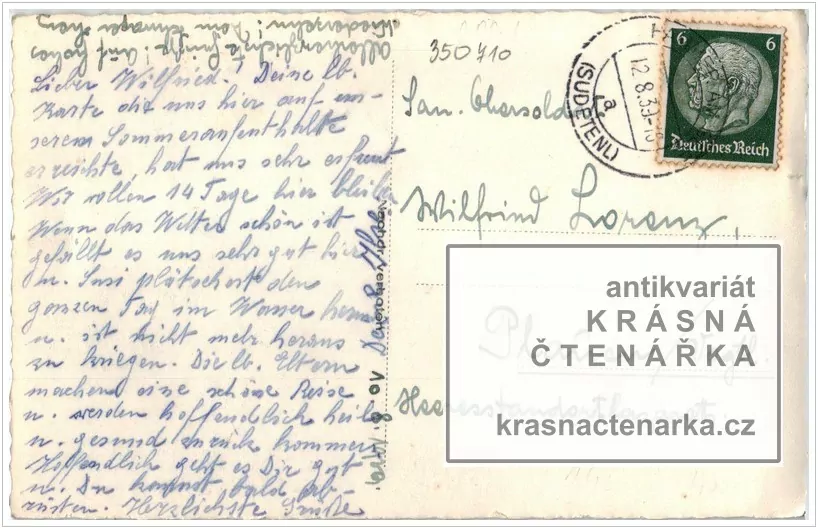 Lieber Wilfried! Deine lb.
Karte die uns hier auf un-
serem Sommeraufenthalte
erreichte, hat uns sehr erfreut
Wir wollen 14 Tage hier bleiben
Wenn das Wetter schön ist
gefällt es uns sehr gut hier
u. Susi plätschert den
ganzen Tag im Wasser herum
u. ist nicht mehr heraus
zu kriegen. Die lb. Eltern
machen eine schöne Reise
u. werden hoffendlich heil
u. gesund zurück kommen
Hoffendlich geht es Dir gut
u. Du kannst bald ab-
rüsten. Herzlichste Grüße
350410
San. Obersold
Wilfried Lorenz,
6 6
Deutsches Reich
12.8.39
a
(SUDETENL)
antikvariát
KRÁSNÁ
ČTENÁŘKA
krasnactenarka.cz